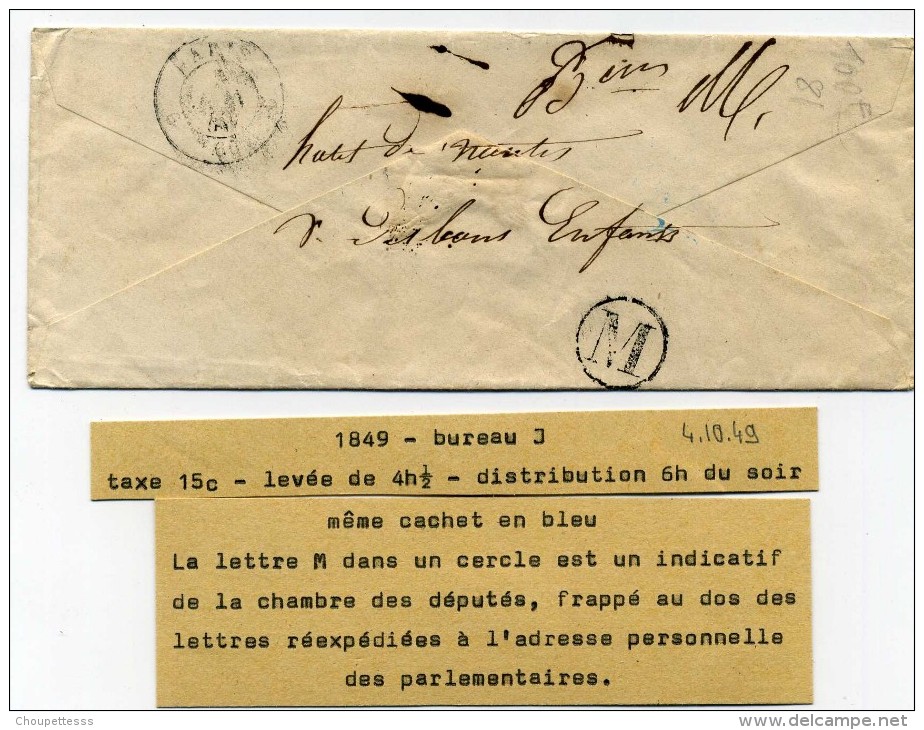 PARIS
Bins M.
100F
18
hotel de nantes
r. des bons Enfants
M
1849 - bureau J
4.10.49
taxe 15c - levée de 4h½ - distribution 6h du soir
même cachet en bleu
La lettre M dans un cercle est un indicatif
de la chambre des députés, frappé au dos des
lettres réexpédiées à l'adresse personnelle
des parlementaires.
Choupettesss
www.delcampe.net